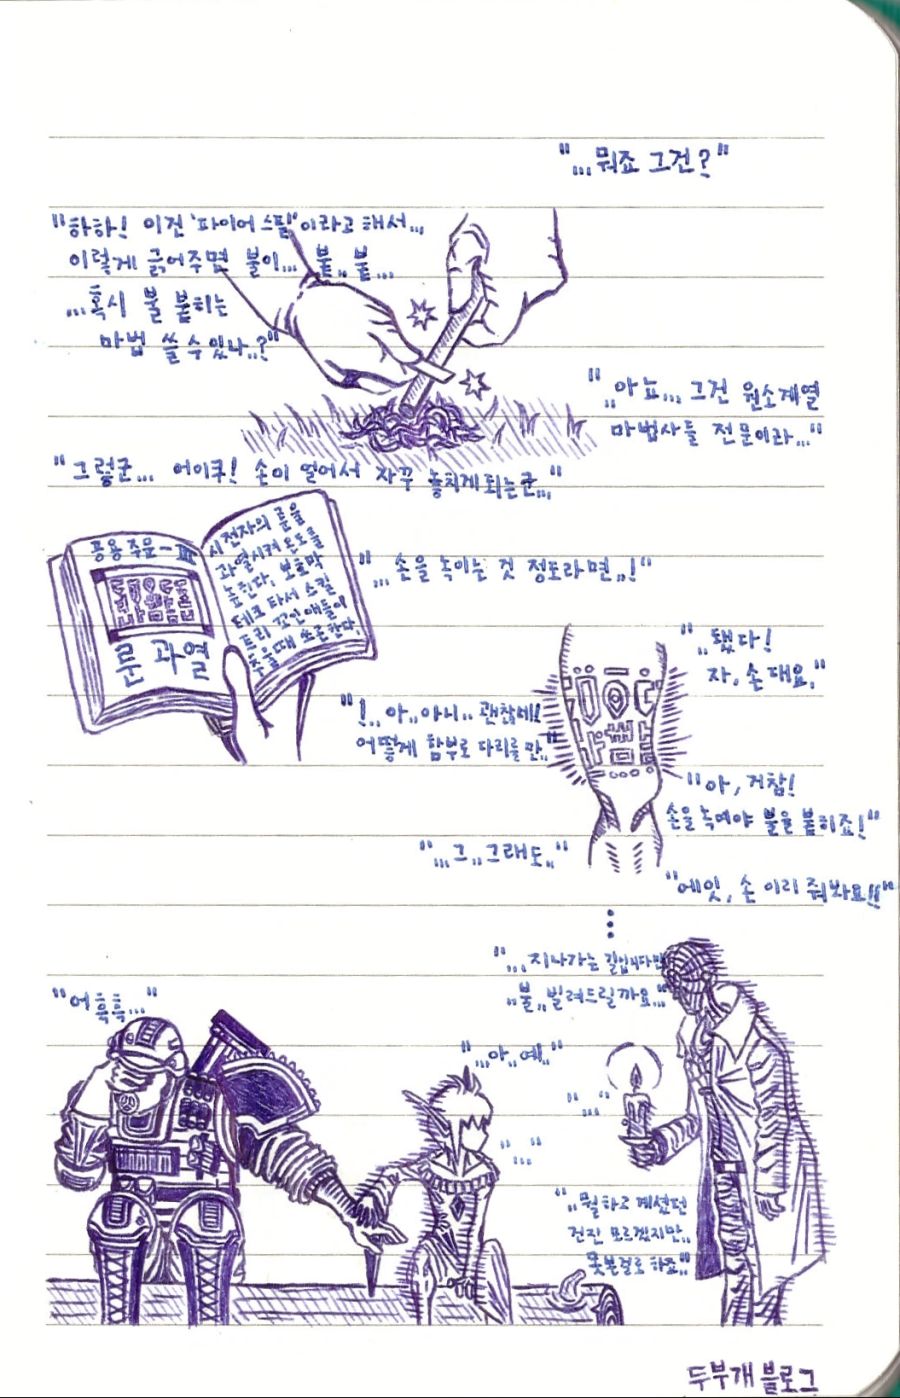 "...뭐죠 그건?"
"하하! 이건 '파이어스틸'이라고 해서...
이렇게 긁어주면 불이... 붙.. 붙...
...혹시 불 붙히는
마법 쓸 수 있나..?"
"..아뇨... 그건 원소계열
마법사들 전문이라..."
"그렇군... 어이쿠! 손이 얼어서 자꾸 놓치게 되는군..."
공용주문-III
룬 과열
시전자의 룬을
과열시켜 온도를
높힌다. 보호막
테크 타서 스킬
트리 꼬인 애들이
추울때 쓰곤한다.
"...손을 녹이는 것 정도라면..!"
"..됐다!
자, 손 대요."
"!..아..아니.. 괜찮네!!
어떻게 함부로 다리를 만.."
"아, 거참!
손을 녹여야 불을 붙히죠!"
"...그..그래도.."
"에잇, 손 이리 줘봐요!!"
"...지나가는 길입니다만
..불..빌려드릴까요..."
"어흑흑..."
"...아..예.."
"..."
"..."
"..뭘하고 계셨던
건진 모르겠지만..
못본걸로 하죠.."
두부개 블로그